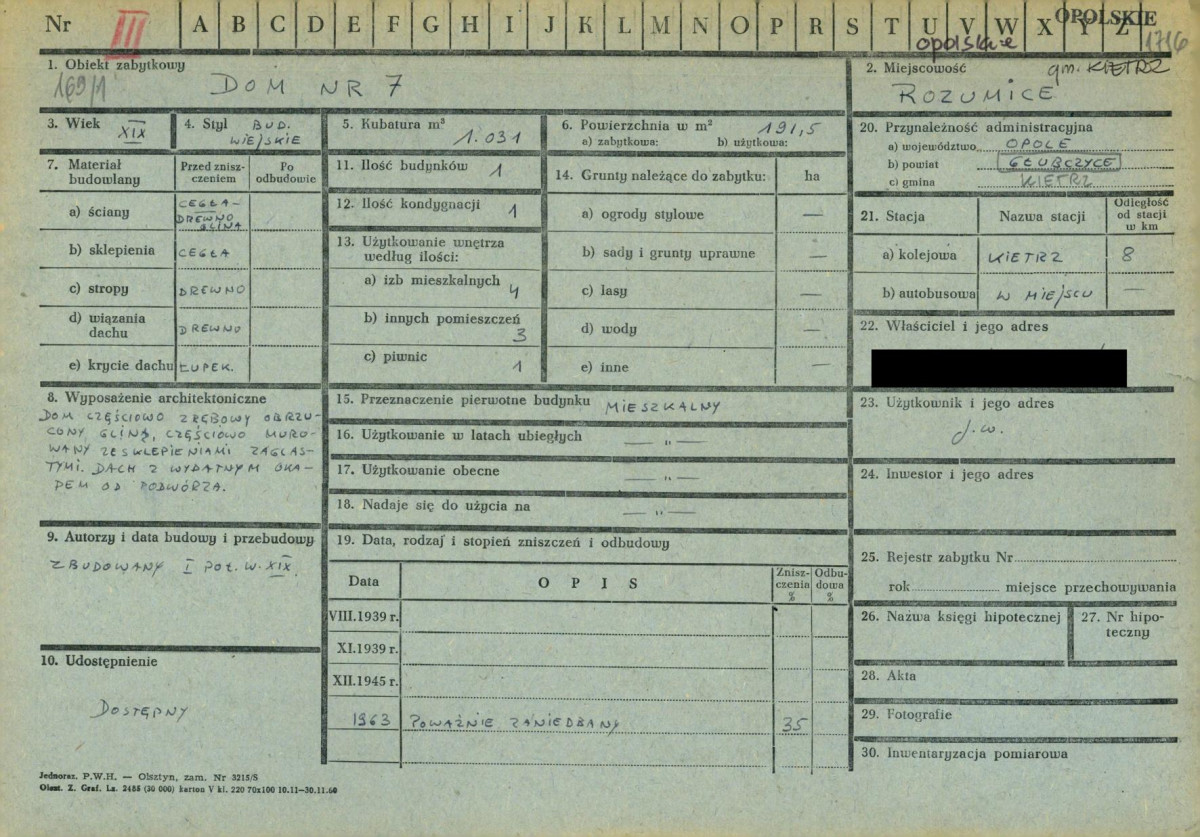 Nr III A B C D E F G H I J K L M N O P R S T U V W X Y Z
OPOLSKIE
opolskie
1716
1. Obiekt zabytkowy
169/1
DOM NR 7
2. Miejscowość gm. KIETRZ
ROZUMICE
3. Wiek
XIX
4. Styl BUD.
WIEJSKIE
5. Kubatura m³
1.031
6. Powierzchnia w m² 191,5
a) zabytkowa: b) użytkowa:
7. Materiał budowlany
Przed zniszczeniem
Po odbudowie
a) ściany CEGŁA-
DREWNO
GLINA
b) sklepienia CEGŁA
c) stropy DREWNO
d) wiązania dachu DREWNO
e) krycie dachu ŁUPEK.
8. Wyposażenie architektoniczne
DOM CZĘŚCIOWO ZRĘBOWY OBRZU-
CONY GLINĄ, CZĘŚCIOWO MURO-
WANY ZE SKLEPIENIAMI ŻAGLAS-
TYMI. DACH Z WYDATNYM OKA-
PEM OD PODWÓRZA.
9. Autorzy i data budowy i przebudowy
ZBUDOWANY I POŁ. W. XIX.
10. Udostępnienie
DOSTĘPNY
11. Ilość budynków 1
12. Ilość kondygnacji 1
13. Użytkowanie wnętrza
według ilości:
a) izb mieszkalnych 4
b) innych pomieszczeń
3
c) piwnic 1
14. Grunty należące do zabytku: ha
a) ogrody stylowe —
b) sady i grunty uprawne —
c) lasy —
d) wody —
e) inne —
15. Przeznaczenie pierwotne budynku MIESZKALNY
16. Użytkowanie w latach ubiegłych — „ —
17. Użytkowanie obecne — „ —
18. Nadaje się do użycia na — „ —
19. Data, rodzaj i stopień zniszczeń i odbudowy
Data OPIS Znisz-
czenia
% Odbu-
dowa
%
VIII.1939 r.
XI.1939 r.
XII.1945 r.
1963 POWAŻNIE ZANIEDBANY 35
20. Przynależność administracyjna
a) województwo OPOLE
b) powiat GŁUBCZYCE
c) gmina KIETRZ
21. Stacja Nazwa stacji Odległość
od stacji
w km
a) kolejowa KIETRZ 8
b) autobusowa W MIEJSCU —
22. Właściciel i jego adres
23. Użytkownik i jego adres
j.w.
24. Inwestor i jego adres
25. Rejestr zabytku Nr
rok miejsce przechowywania
26. Nazwa księgi hipotecznej
27. Nr hipo-
teczny
28. Akta
29. Fotografie
30. Inwentaryzacja pomiarowa
Jednoraz. P.W.H. — Olsztyn, zam. Nr 3215/S
Olszt. Z. Graf. Lz. 2485 (30 000) karton V kl. 220 70x100 10.11—30.11.60